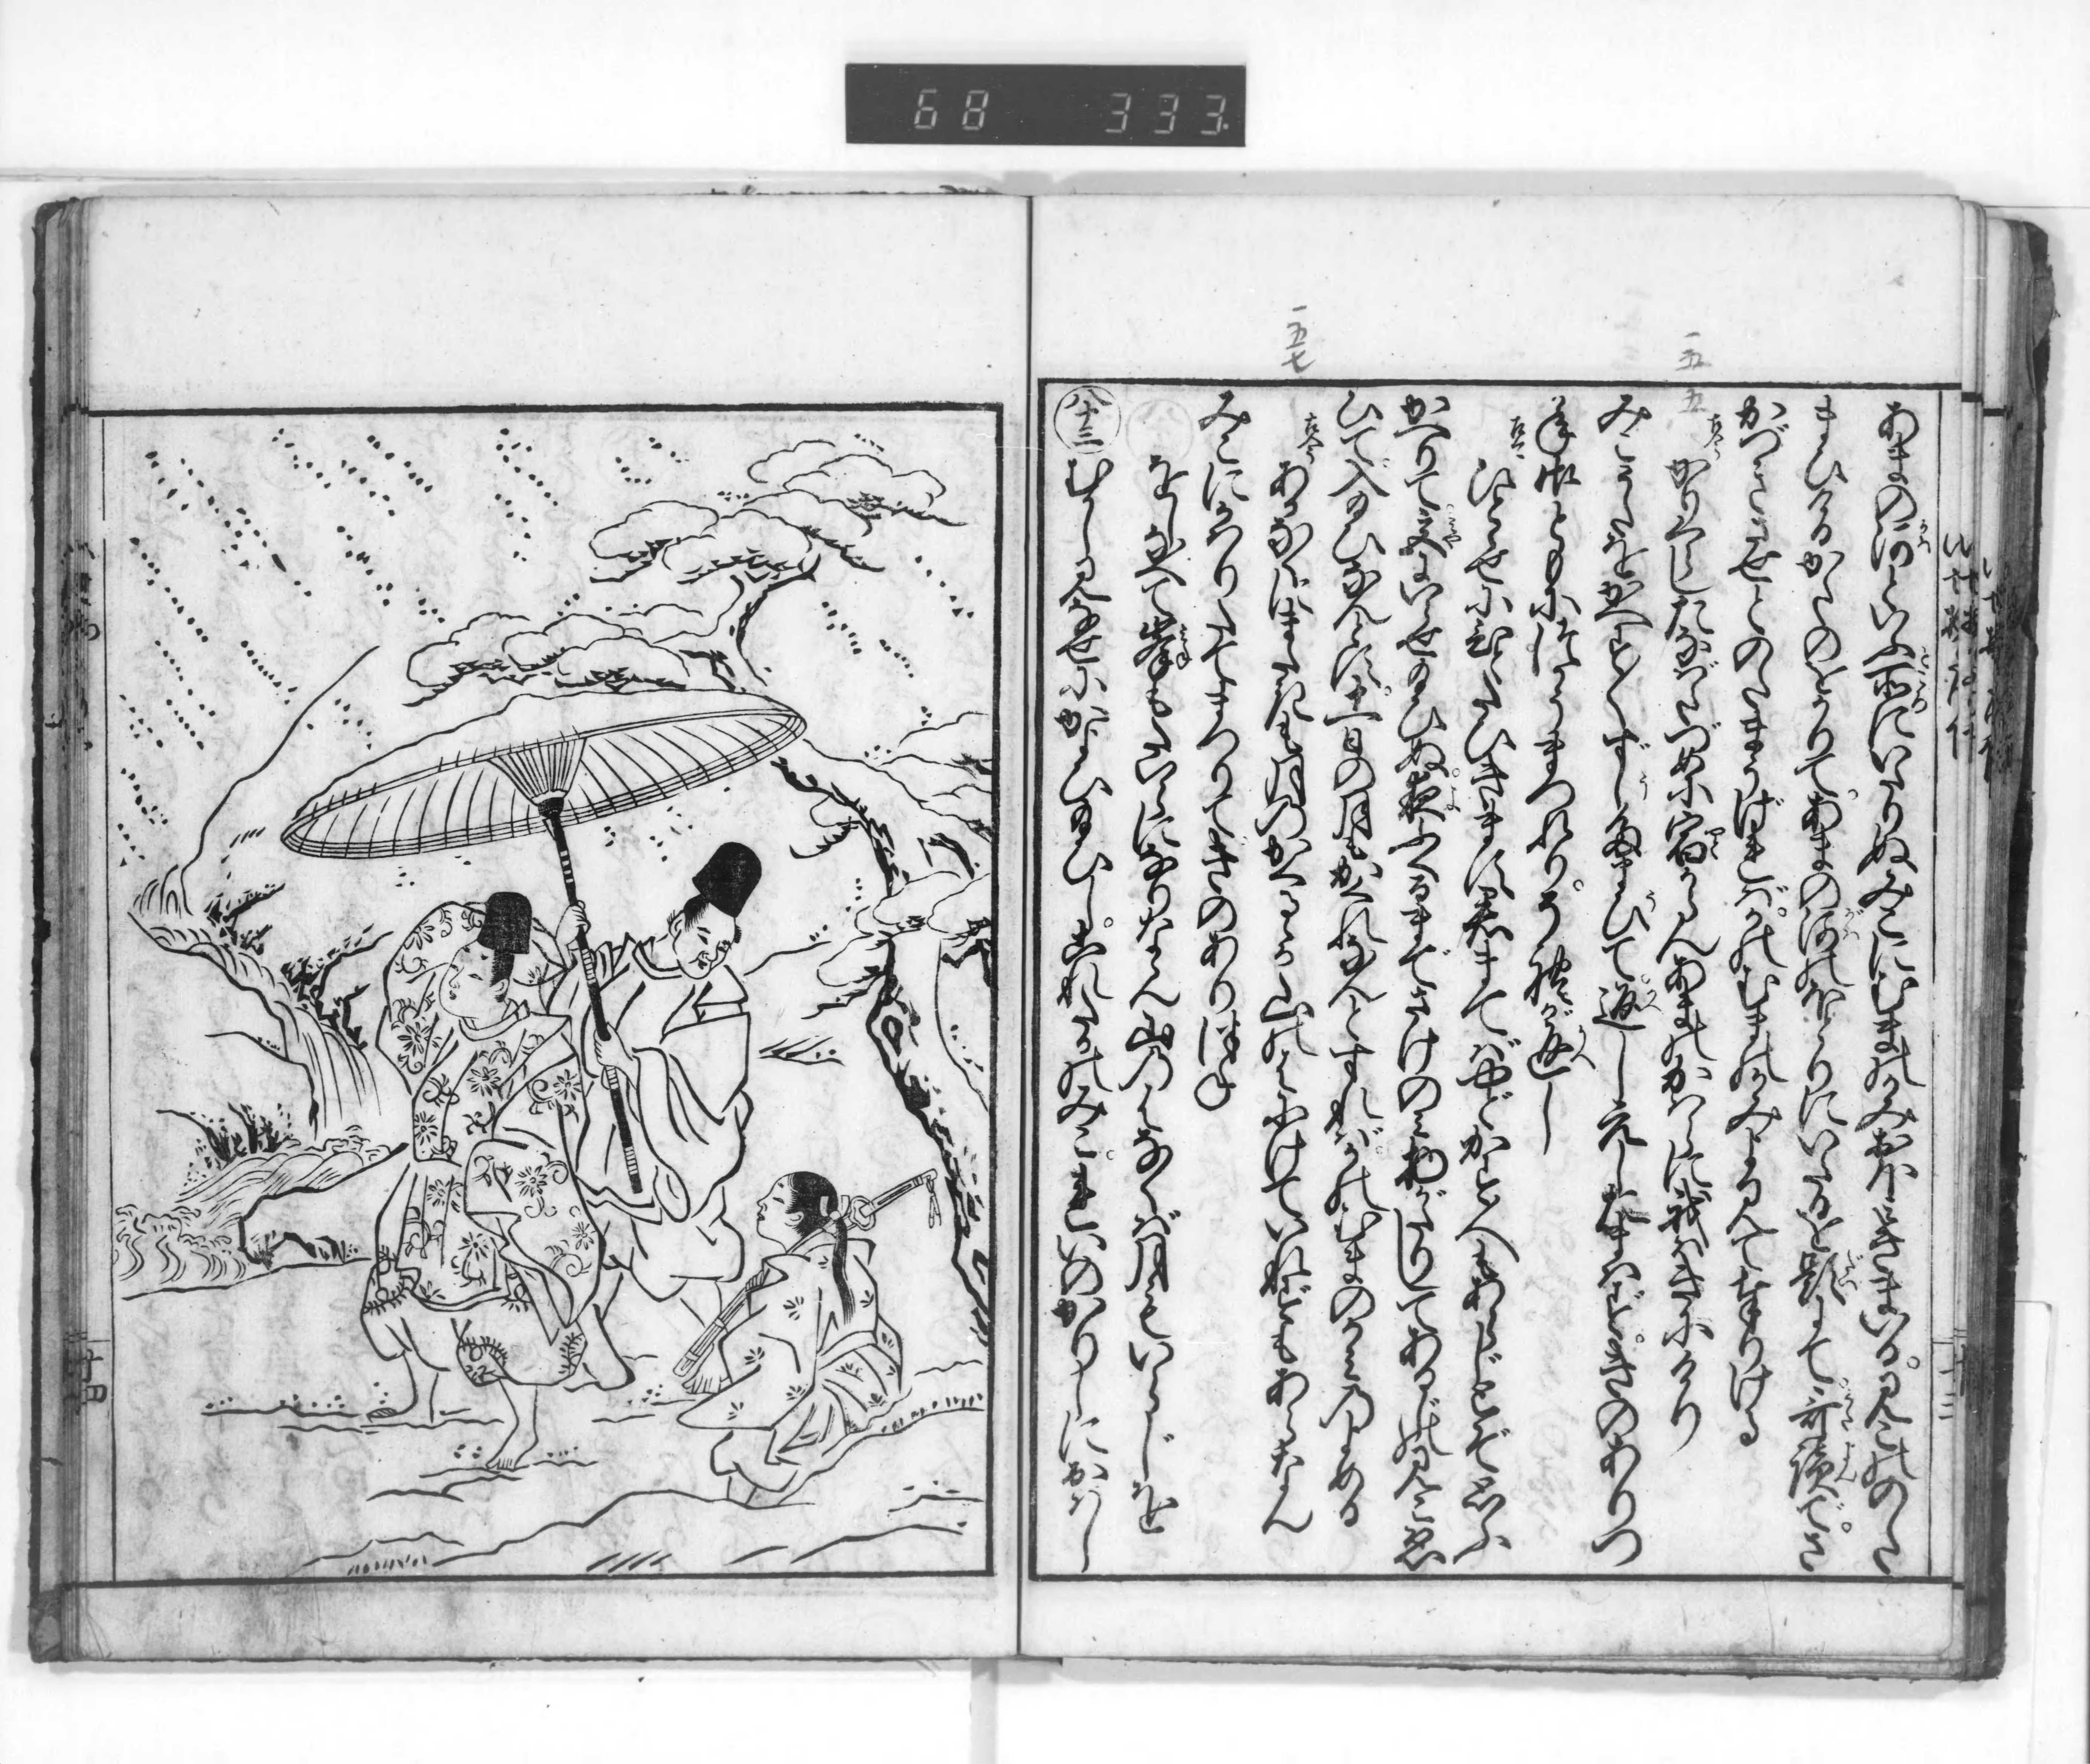 68 333
一五五
一五七
あまの河といふ所にいたりぬみこにむまのかみおほみきまいるみこのゝた
まひけるかたのをかりてあまの河のほとりにいたるを題にて哥讀てさ
かづきはさせとのたまうければかのむまのかみよみて奉りける
古今 かりくらしたなばたつめに宿からんあまのかはらに我はきにけり
みこ哥をかへす〴〵ずし給ひて返しえし給はずきのありつ
ね御ともにつかうまつれりそれが返し
古今 ひとゝせに一たびきます君まてばやどかす人もあらじとぞ思ふ
かへりて宮にいらせ給ひぬ夜ふくるまでさけのみ物がたりしてあるじのみこゑ
ひて入給ひなんとす十一日の月もかくれなんとすればかのむまのかみのよめる
古今 あかなくにまだきも月のかくるゝか山のはにげていれずもあらなん
みこにかはりたてまつりてきのありつね
をしなべて峯もたいらになりなゝん山のはなくば月もいらじを
八十三 むかしみなせにかよひ給ひしこれたかのみこれいのかりしにおはし